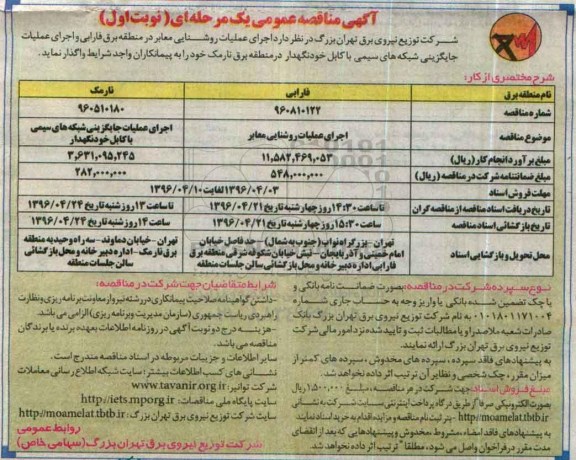 آگهی مناقصه عمومی یک مرحله ای (نوبت اول)
شرکت توزیع نیروی برق تهران بزرگ در نظر دارد اجرای عملیات روشنایی معابر در منطقه برق فارابی و اجرای عملیات
جایگزینی شبکه های سیمی با کابل خودنگهدار در منطقه برق نارمک خود را به پیمانکاران واجد شرایط واگذار نماید.
شرح مختصری از کار:
نام منطقه برق فارابی نارمک
شماره مناقصه ۹۶۰۸۱۰۱۲۲ ۹۶۰۵۱۰۱۸۰
موضوع مناقصه اجرای عملیات روشنایی معابر اجرای عملیات جایگزینی شبکه های سیمی
با کابل خودنگهدار
مبلغ برآورد انجام کار (ریال) ۱۱,۵۸۲,۴۶۹,۰۵۳ ۳,۶۳۱,۰۹۵,۲۴۵
مبلغ ضمانتنامه شرکت در مناقصه (ریال) ۵۴۸,۰۰۰,۰۰۰ ۲۸۲,۰۰۰,۰۰۰
مهلت فروش اسناد ۱۳۹۶/۰۴/۰۳ لغایت ۱۳۹۶/۰۴/۱۰
تاریخ دریافت اسناد مناقصه از مناقصه گران تا ساعت ۱۴:۳۰ روز چهارشنبه تاریخ ۱۳۹۶/۰۴/۲۱ تا ساعت ۱۳ روز شنبه تاریخ ۱۳۹۶/۰۴/۲۴
تاریخ بازگشائی اسناد مناقصه ساعت ۱۵:۳۰ روز چهارشنبه تاریخ ۱۳۹۶/۰۴/۲۱ ساعت ۱۴ روز شنبه تاریخ ۱۳۹۶/۰۴/۲۴
محل تحویل و بازگشایی اسناد تهران - بزرگراه نواب (جنوب به شمال) - حد فاصل خیابان تهران - خیابان دماوند - سه راه وحیدیه منطقه
امام خمینی و آذربایجان - نبش خیابان شکوفه شرقی منطقه برق برق نارمک - اداره دبیرخانه و محل بازگشائی
فارابی اداره دبیرخانه و محل بازگشائی سالن جلسات منطقه سالن جلسات منطقه
نوع سپرده شرکت در مناقصه: بصورت ضمانت نامه بانکی و
یا چک تضمین شده بانکی یا واریز وجه به حساب جاری شماره
۰۱۰۱۸۰۱۱۷۱۰۰۴ به نام شرکت توزیع نیروی برق تهران بزرگ بانک
صادرات شعبه ملاصدرا و یا مطالبات ثبت و تایید شده نزد امور مالی شرکت
توزیع نیروی برق تهران بزرگ ارائه نمایند.
به پیشنهادهای فاقد سپرده، سپرده های مخدوش، سپرده های کمتر از
میزان مقرر، چک شخصی و نظایر آن ترتیب اثر داده نخواهد شد.
مبلغ فروش اسناد: جهت شرکت در هر مناقصه، مبلغ ۱,۵۰۰,۰۰۰ ریال
بصورت الکترونیکی صرفاً از طریق درگاه پرداخت اینترنتی سایت شرکت به نشانی
http://moamelat.tbtb.ir - بنام ثبت نام مناقصه و مزایده اقدام به خرید اسناد نمایند.
به پیشنهادهای فاقد امضاء، مشروط، مخدوش و پیشنهادهایی که بعد از انقضای
مدت مقرر در فراخوان واصل می شود، مطلقا" ترتیب اثر داده نخواهد شد.
شرایط متقاضیان جهت شرکت در مناقصه:
-داشتن گواهینامه صلاحیت پیمانکاری در رشته نیرو از معاونت برنامه ریزی و نظارت
راهبردی ریاست جمهوری (سازمان مدیریت و برنامه ریزی) الزامی می باشد.
-هزینه درج دو نوبت آگهی در روزنامه اطلاعات بعهده برنده یا برندگان
مناقصه می باشد.
سایر اطلاعات و جزییات مربوطه در اسناد مناقصه مندرج است.
نشانی های کسب اطلاعات بیشتر: سایت شبکه اطلاع رسانی معاملات
شرکت توانیر: www.tavanir.org.ir
سایت پایگاه ملی مناقصات: http://iets.mporg.ir
سایت شرکت توزیع نیروی برق تهران بزرگ: http://moamelat.tbtb.ir
روابط عمومی
شرکت توزیع نیروی برق تهران بزرگ (سهامی خاص)